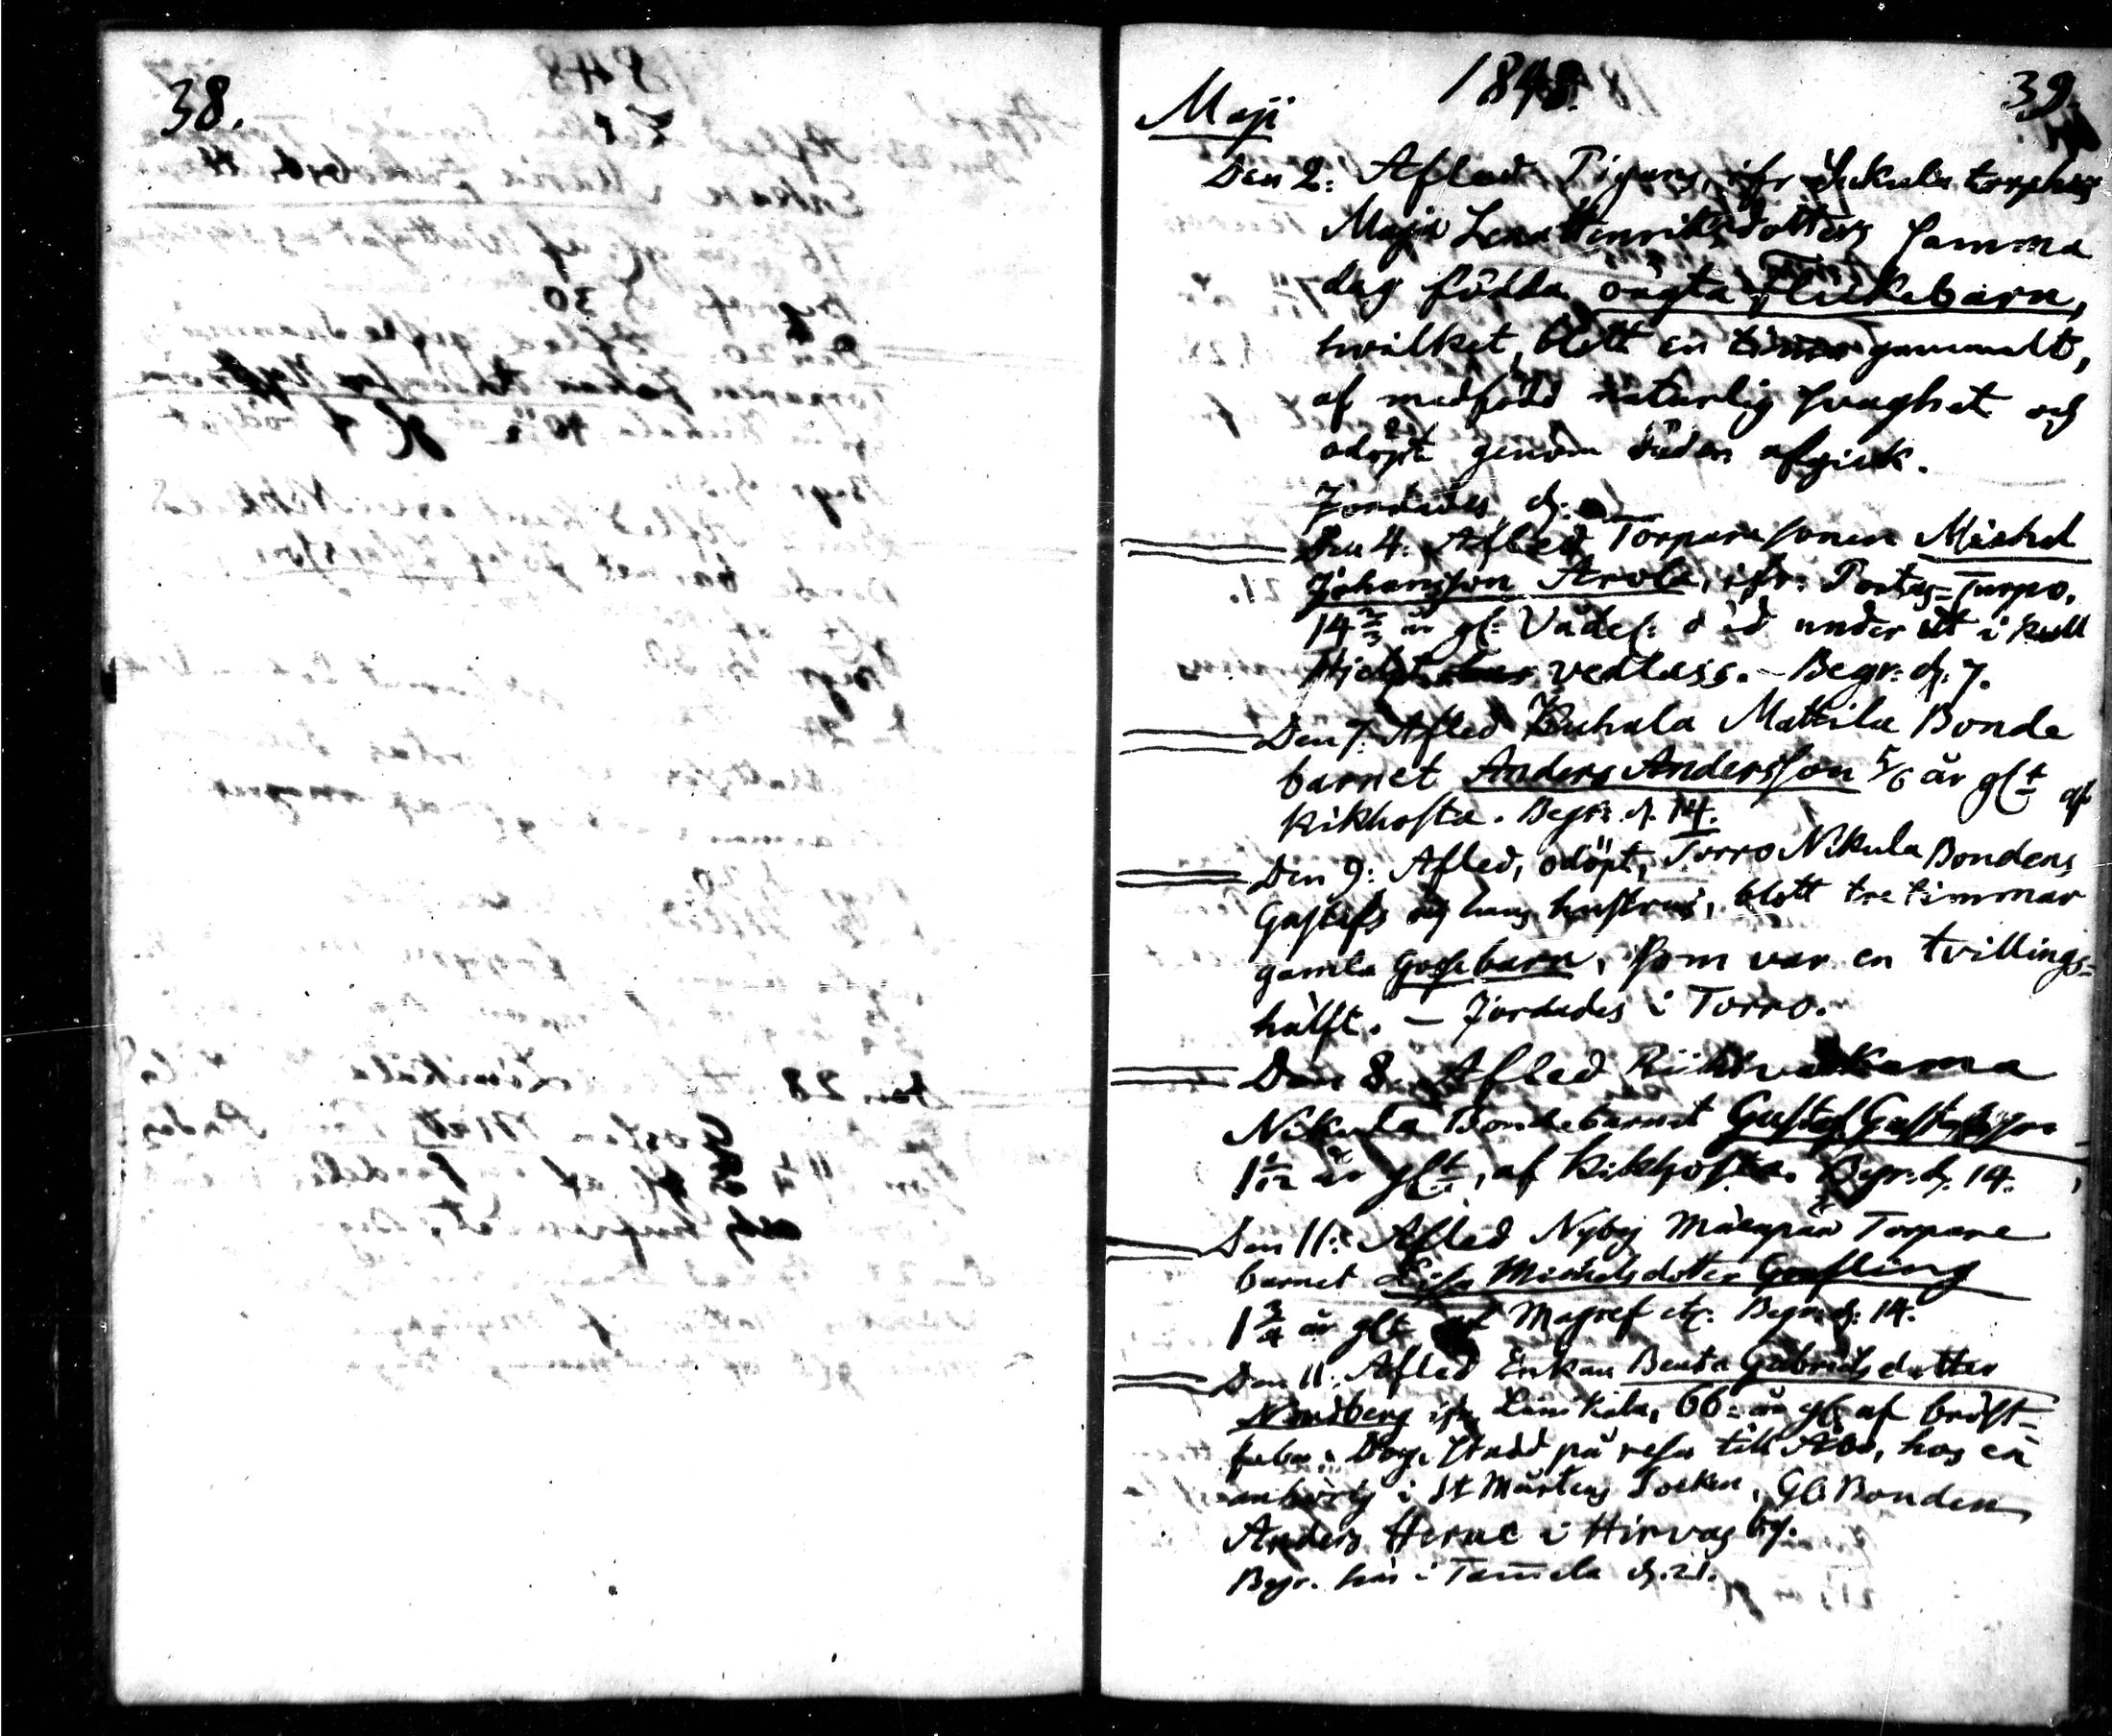 38.
1848.
39.
Maji
Den 2: Afled Pigans, ifr Jukula torphus
Maja Lena Henriksdotters samma
dag födda oägta flickebarn,
hvilket, blott en timma gammalt,
af medfödd naturlig svaghet och
odöpt genom döden afgick.
Jordades d:
Den 4. Afled Torparesonen Michel
Johansson Arola, ifr: Portas-Jurpo.
14 2/3 år gl: Vådel: död under ett i kull
vedlass. - Begr: d. 7.
Den 7. Afled Kuhala Mattila Bonde
barnet Anders Andersson 5/6 år glt af
kikhosta. Begr. d. 14.
Den 9: Afled, odöpt, Torro Nikula Bondens
Gustafs och hans hustrus, blott tre timmar
gamla gossebarn, som var en tvillings=
hälft. - Jordades i Torro.
Den 8. Afled
Nikula Bondebarnet Gustaf Gustafsson
1 1/12 år glt, af kikhosta. Begr: d. 14.
Den 11: Afled Nyby Torpare
barnet Lisa Michelsdotter
1 3/4 år glt af Magref etc. Begr. d. 14.
Den 11. Afled Enkan Beata Gabrielsdotter
Nordberg ifr. Linikala, 66 år gl. af bröst=
feber. Dog, stadd på resa till Åbo, hos en
anhörig i St Mårtens Socken, Gl. Bonden
Anders Herne i Hirvas by.
Begr. här i Tammela d. 21.